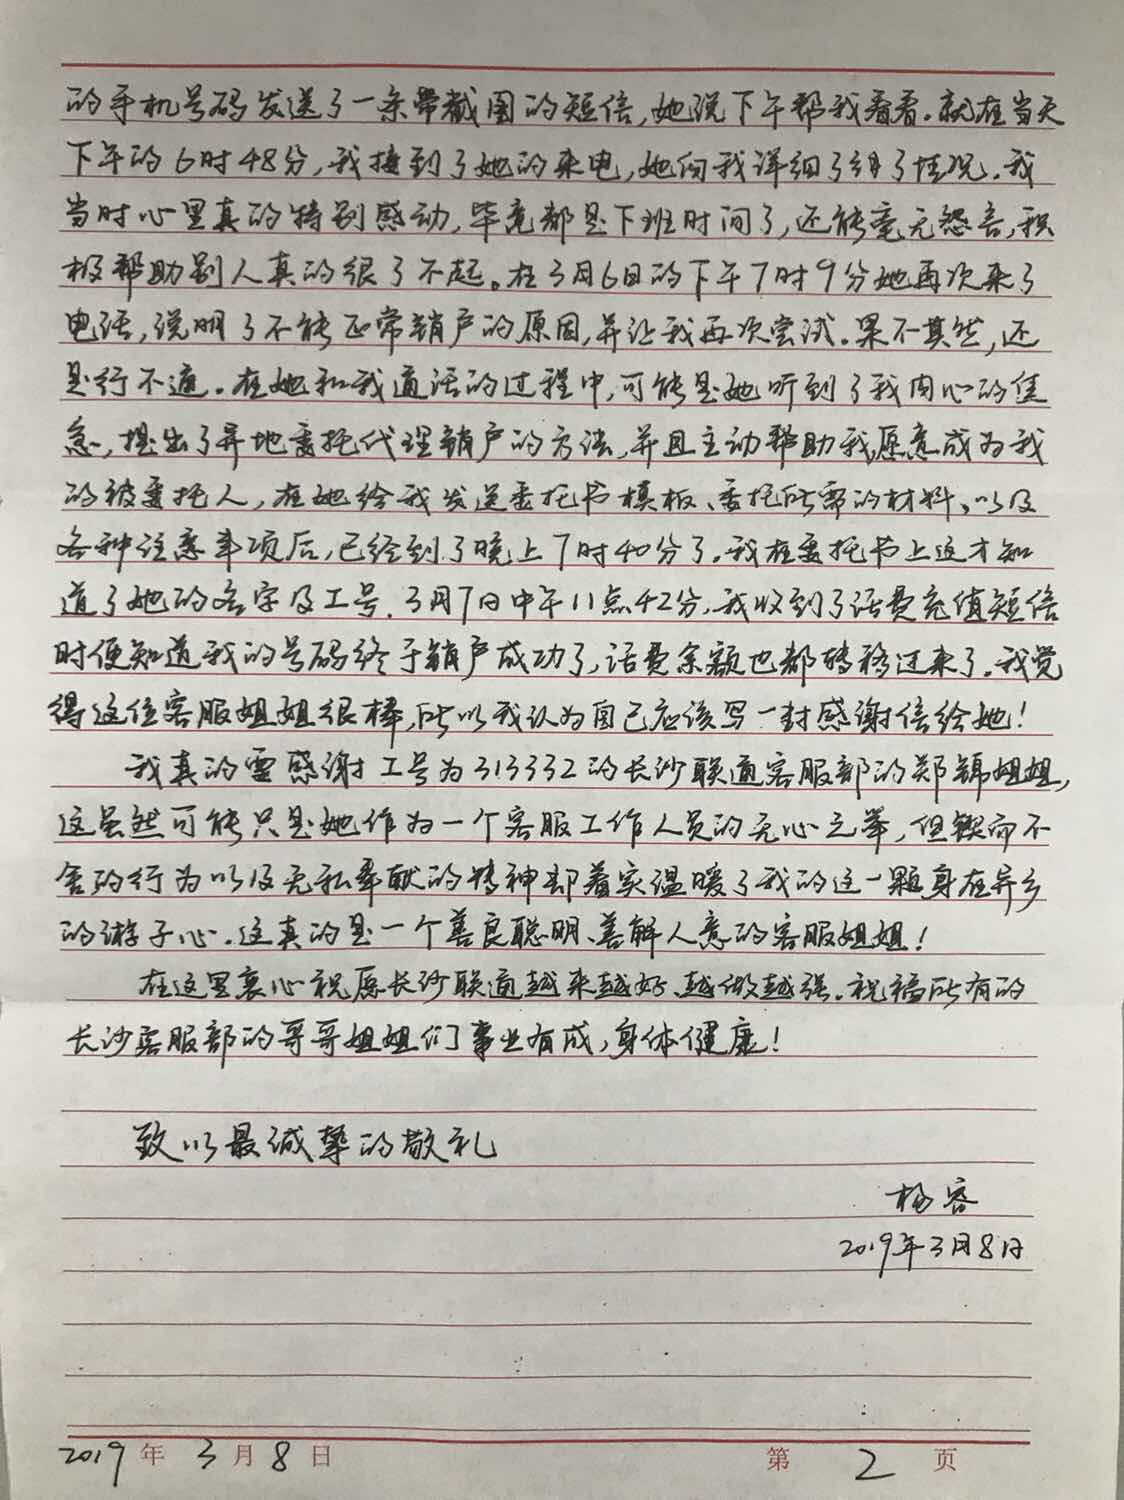 的手机号码发送了一条带截图的短信，她说下午帮我看看。就在当天
下午的6时48分，我接到了她的来电，她向我详细了解了情况。我
当时心里真的特别感动，毕竟都是下班时间了，还能毫无怨言，积
极帮助别人真的很了不起。在3月6日的下午7时9分她再次来了
电话，说明了不能正常销户的原因，并让我再次尝试。果不其然，还
是行不通。在她和我通话的过程中，可能是她听到了我内心的焦
急，提出了异地委托代理销户的方法，并且主动帮助我愿意成为我
的被委托人，在她给我发送委托书模板、委托所需的材料、以及
各种注意事项后，已经到了晚上7时40分了。我在委托书上这才知
道了她的名字及工号。3月7日中午11点42分，我收到了话费充值短信
时便知道我的号码终于销户成功了，话费余额也都转移过来了。我觉
得这位客服姐姐很棒，所以我认为自己应该写一封感谢信给她！
我真的要感谢工号为313332的长沙联通客服部的郑锦姐姐，
这虽然可能只是她作为一个客服工作人员的无心之举，但锲而不
舍的行为以及无私奉献的精神却着实温暖了我的这一颗身在异乡
的游子心。这真的是一个善良聪明、善解人意的客服姐姐！
在这里衷心祝愿长沙联通越来越好、越做越强。祝福所有的
长沙客服部的哥哥姐姐们事业有成，身体健康！
致以最诚挚的敬礼
杨容
2019年3月8日
2019年3月8日 第2页